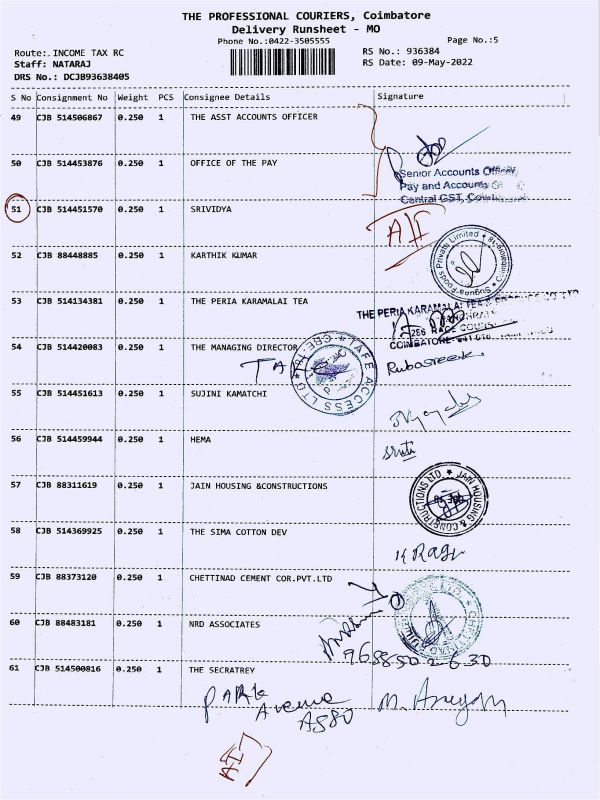 THE PROFESSIONAL COURIERS, Coimbatore
Delivery Runsheet - MO
Phone No.:0422-3505555
Page No.:5
Route:.INCOME TAX RC
Staff: NATARAJ
DRS No.: DCJB93638405
RS No.: 936384
RS Date: 09-May-2022
S No Consignment No Weight PCS Consignee Details Signature
49 CJB 514506867 0.250 1 THE ASST ACCOUNTS OFFICER
50 CJB 514453876 0.250 1 OFFICE OF THE PAY
Senior Accounts Officer
Pay and Accounts
Central GST,
51 CJB 514451570 0.250 1 SRIVIDYA
52 CJB 88448885 0.250 1 KARTHIK KUMAR
Suguna Foods Private Limited * Coimbatore-18
53 CJB 514134381 0.250 1 THE PERIA KARAMALAI TEA
THE PERIA KARAMALAI TEA &
286 RACE
COIMBATORE
54 CJB 514420083 0.250 1 THE MANAGING DIRECTOR
TAFE ACCESS LTD * CBE-18 *
55 CJB 514451613 0.250 1 SUJINI KAMATCHI
56 CJB 514459944 0.250 1 HEMA
57 CJB 88311619 0.250 1 JAIN HOUSING &CONSTRUCTIONS
JAIN HOUSING & CONSTRUCTIONS LTD *
58 CJB 514369925 0.250 1 THE SIMA COTTON DEV
K Ragu
59 CJB 88373120 0.250 1 CHETTINAD CEMENT COR.PVT.LTD
60 CJB 88483181 0.250 1 NRD ASSOCIATES
61 CJB 514500816 0.250 1 THE SECRATREY
PARK
Avenue